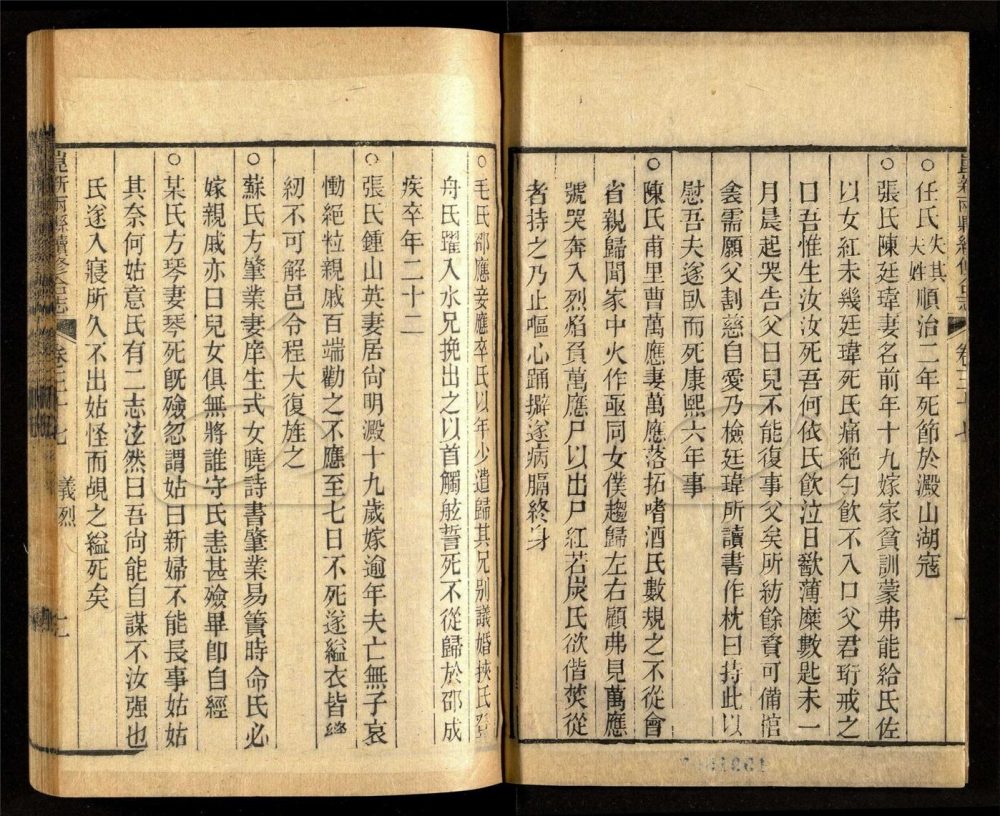 崑新兩縣續修合志 卷三十七
○任氏失其夫姓順治二年死節於澱山湖寇
○張氏陳廷瑋妻名前年十九嫁家貧訓蒙弗能給氏佐
以女紅未幾廷瑋死氏痛絶勺飲不入口父君珩戒之
口吾惟生汝汝死吾何依氏飲泣日歠薄糜數匙未一
月晨起哭告父曰兒不能復事父矣所紡餘資可備棺
衾需願父割慈自愛乃檢廷瑋所讀書作枕曰持此以
慰吾夫遂臥而死康熙六年事
○陳氏甫里曹萬應妻萬應落拓嗜酒氏數規之不從會
省親歸聞家中火作亟同女僕趨歸左右顧弗見萬應
號哭奔入烈焰負萬應尸以出尸紅若炭氏欲偕焚從
者持之乃止嘔心踊擗遂病膈終身
○毛氏邵應妾應卒氏以年少遣歸其兄別議婚挾氏登
舟氏躍入水兄挽出之以首觸舷誓死不從歸於邵成
疾卒年二十二
○張氏鍾山英妻居尙明澱十九歲嫁逾年夫亡無子哀
慟絶粒親戚百端勸之不應至七日不死遂縊衣皆
紉不可解邑令程大復旌之
○蘇氏方肇業妻庠生式女曉詩書肇業易簀時命氏必
嫁親戚亦曰兒女俱無將誰守氏恚甚殮畢卽自經
○某氏方琴妻琴死旣殮忽謂姑曰新婦不能長事姑姑
其奈何姑意氏有二志泫然曰吾尙能自謀不汝强也
氏遂入寢所久不出姑怪而覘之縊死矣
崑新兩縣續修合志 卷三十七 義烈